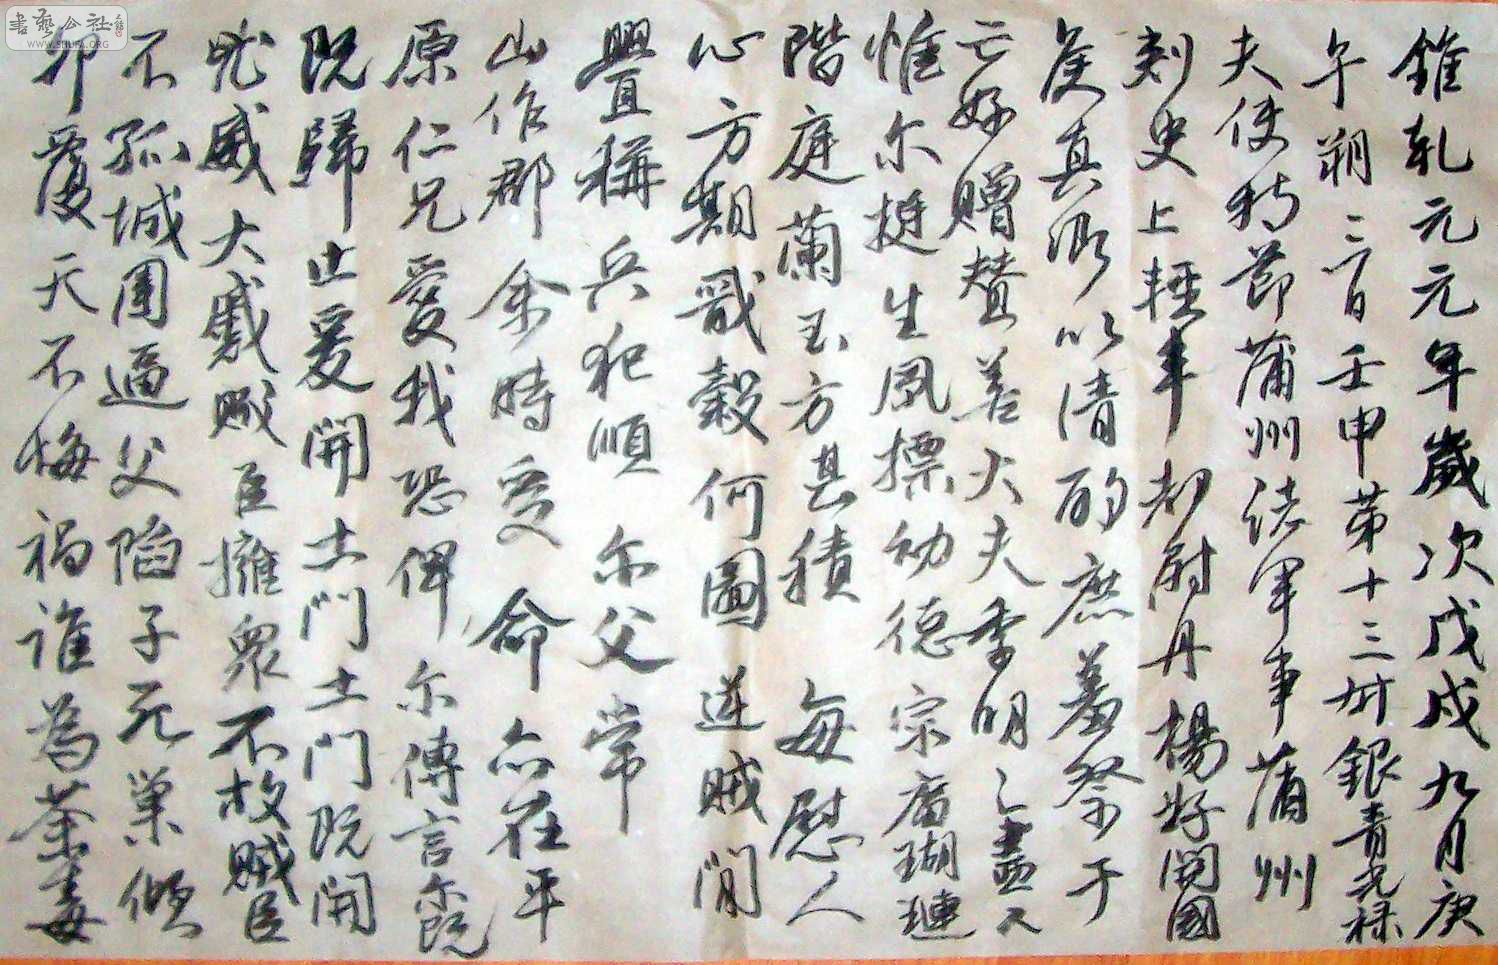 維乹元元年歲次戊戌九月庚
午朔三日壬申第十三州銀青光祿
夫使持節蒲州諸軍事蒲州
刺史上輕車都尉丹楊好開國
侯真卿以清酌庶羞祭于
亡好贈贊善大夫季明之靈
惟尔挺生夙標幼德宗廟瑚璉
階庭蘭玉方其積 每慰人
心方期戩穀何圖逆賊閒
舋稱兵犯順尔父常
山作郡余時受命亦在平
原仁兄愛我恐俾尔傳言尔既
既歸止爰開土門土門既開
兇威大蹙賊臣擁衆不救賊臣
不孤城圍逼父陷子死巢傾
卵覆天不悔禍誰為荼毒
書藝公社
WWW.SHUFA.ORG